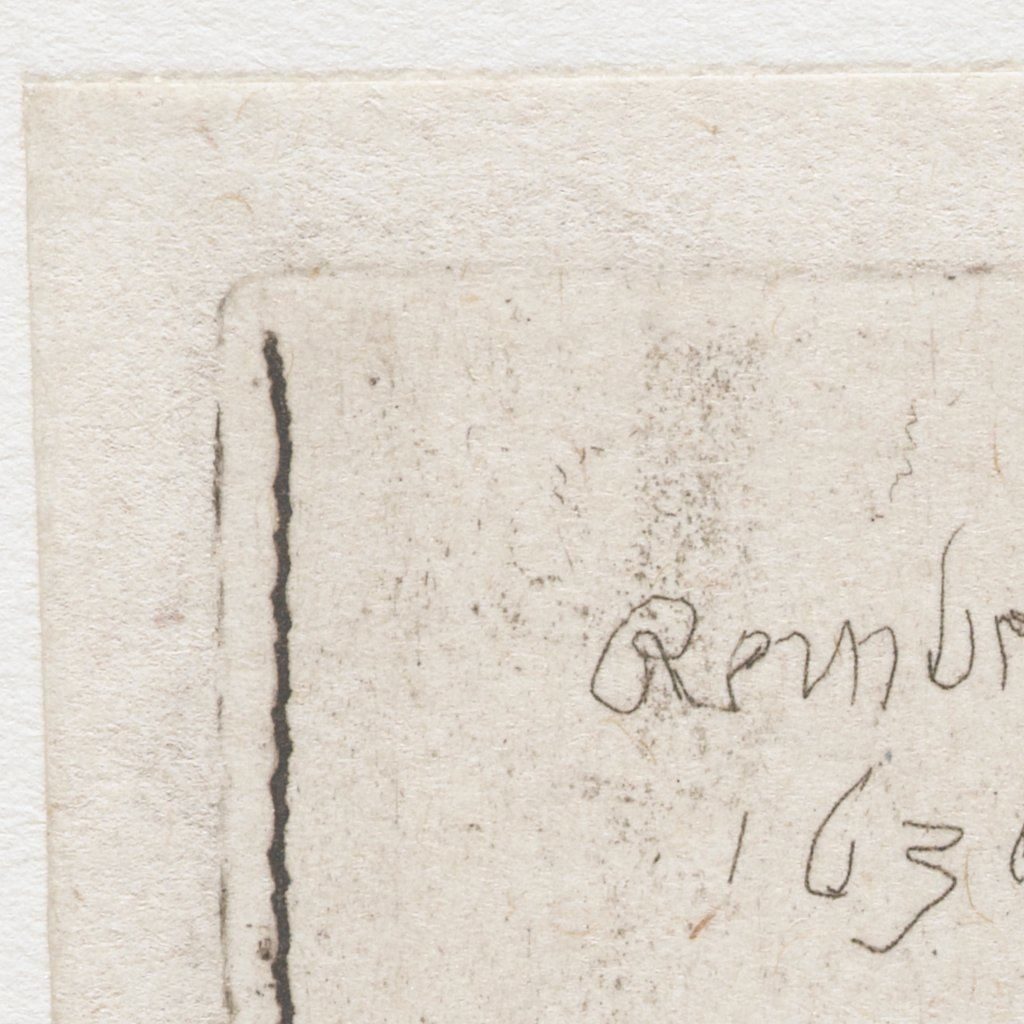 Rembr
163